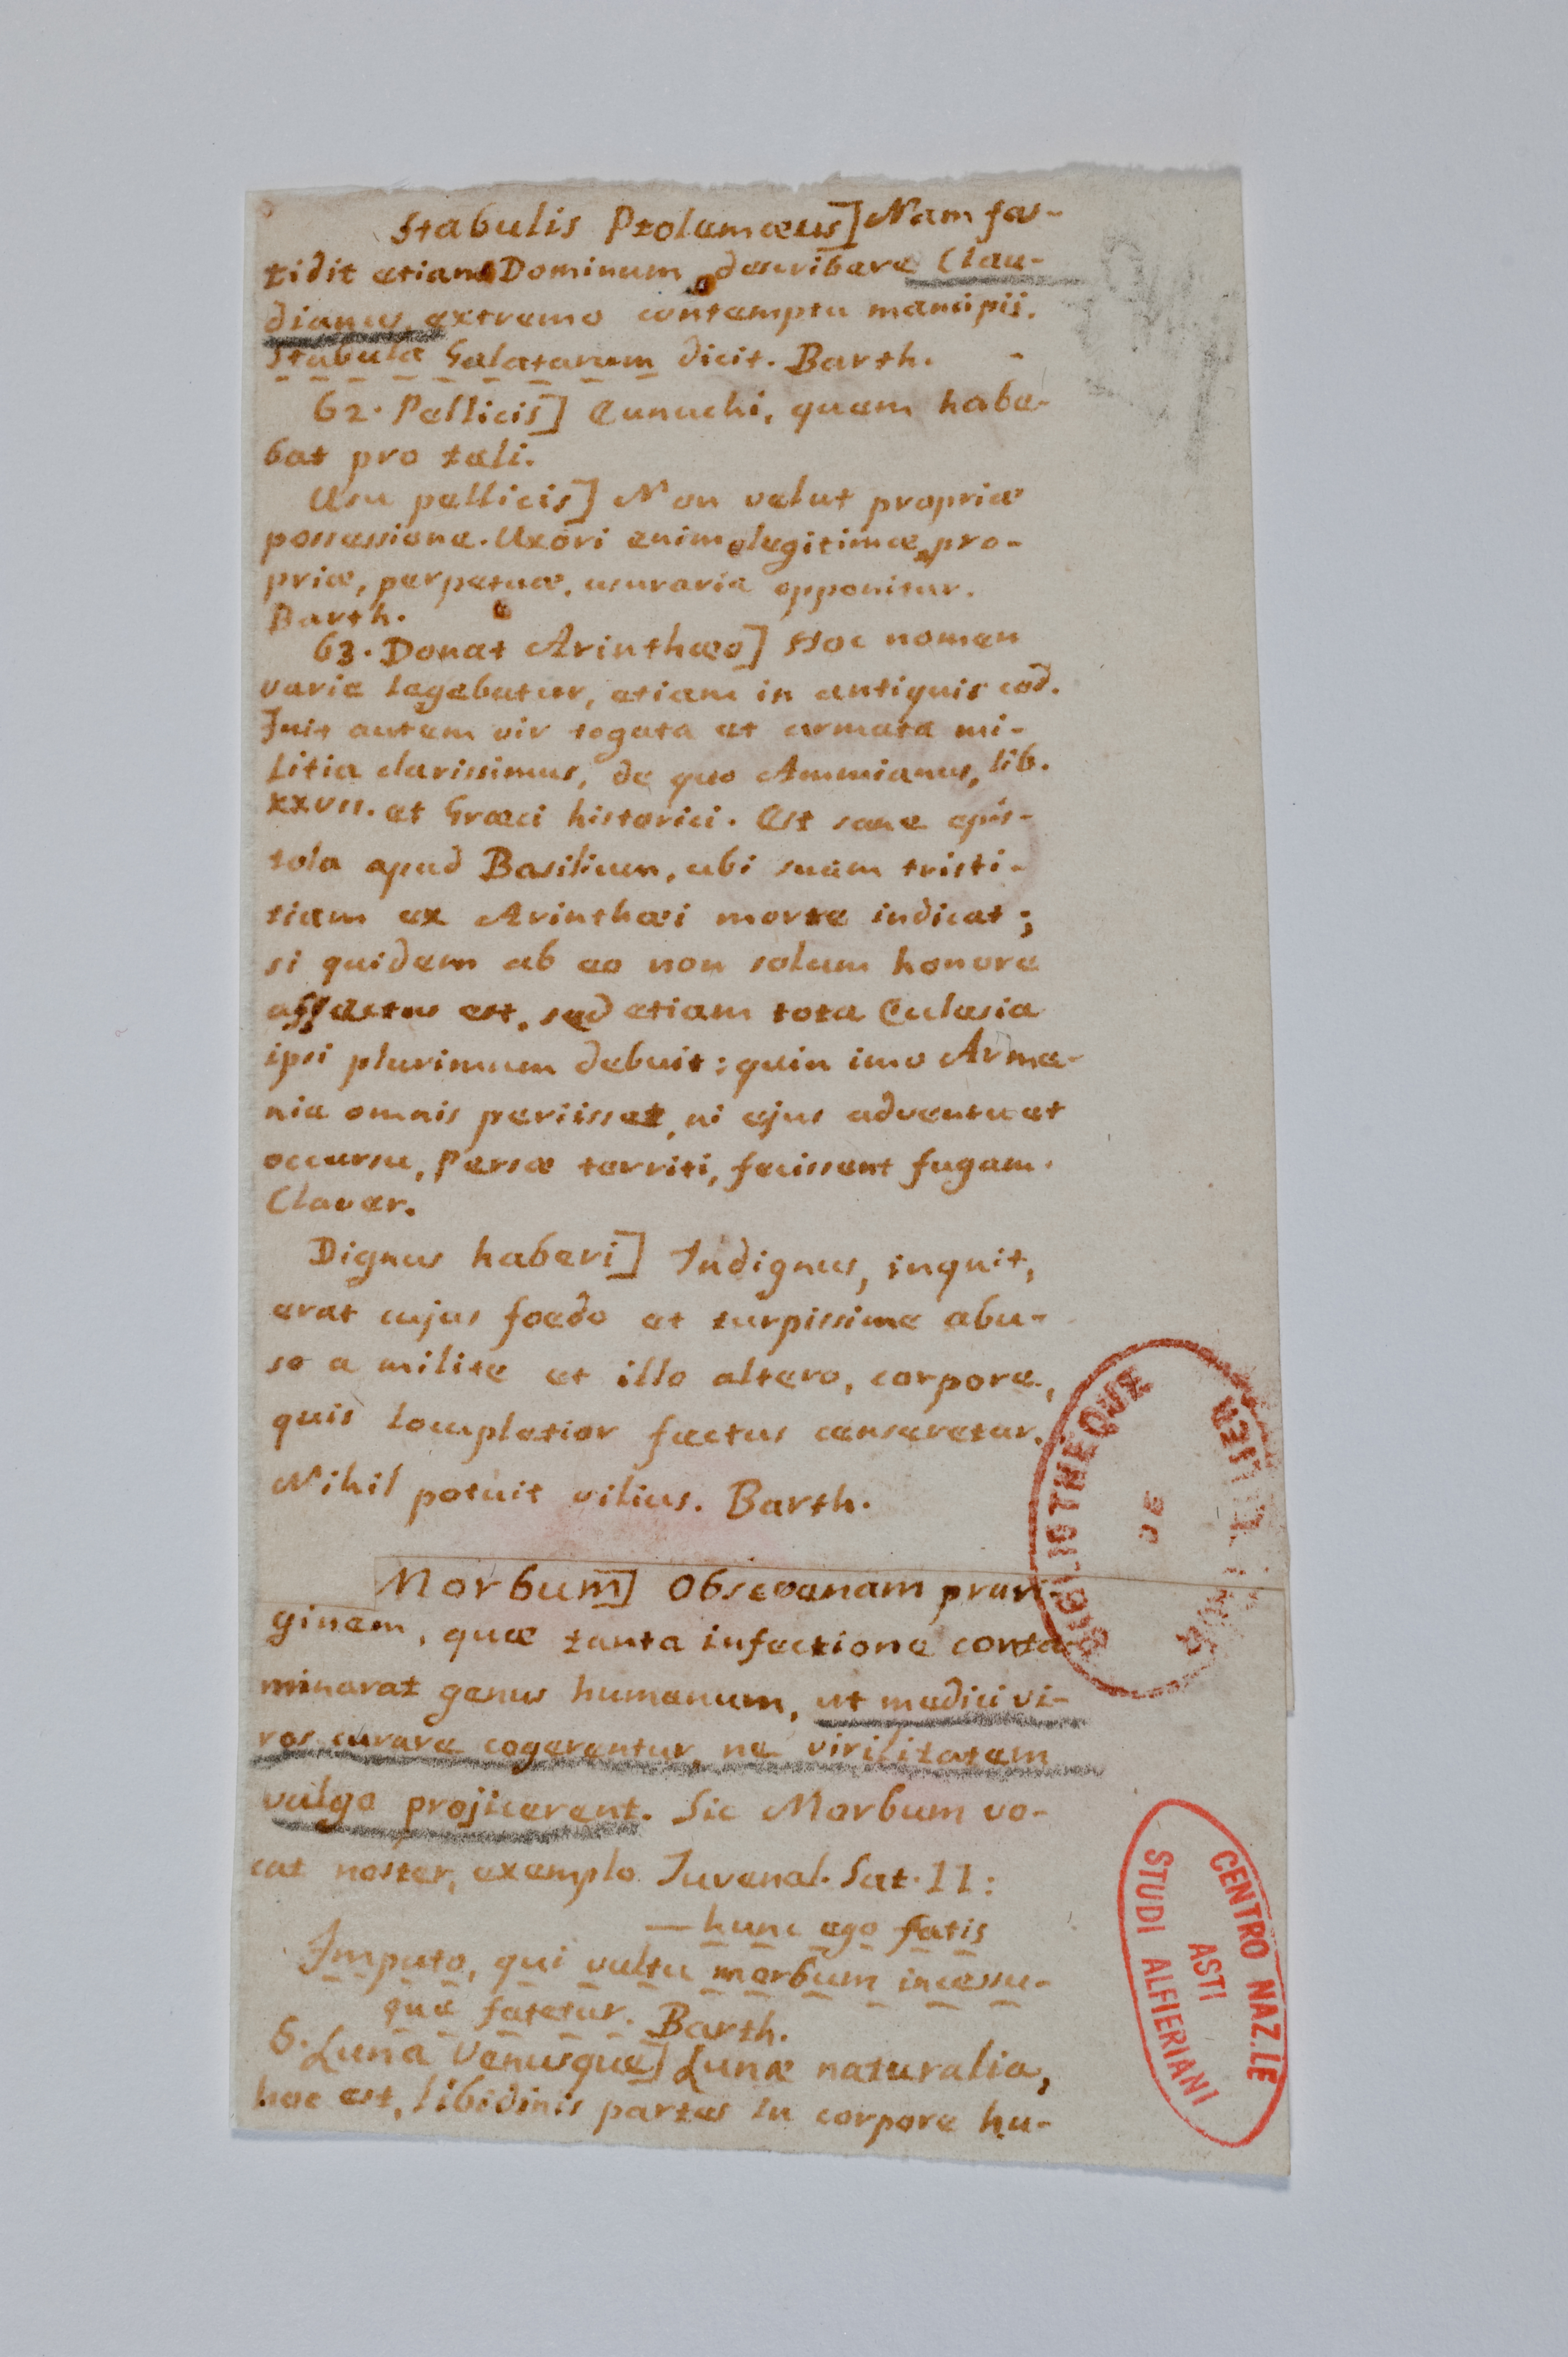 Stabulis Ptolemæus] Nam fas-
tidit etiam Dominum describere Clau-
dianus, extremo contemptu mancipii.
Stabula Galatarum dicit. Barth.
62. Pellicis] Eunuchi, quem habe-
bat pro tali.
Usu pellicis] Non velut propriæ
possessione. Uxori enim legitimæ, pro-
priæ, perpetuæ, usuraria opponitur.
Barth.
63. Donat Arinthæo] Hoc nomen
varie legebatur, etiam in antiquis cod.
Fuit autem vir togata et armata mi-
litia clarissimus, de quo Ammianus, lib.
XXVII. et Græci historici. Est sane epis-
tola apud Basilium, ubi suam tristi-
tiam ex Arinthæi morte indicat;
si quidem ab eo non solum honore
affectus est, sed etiam tota Ecclesia
ipsi plurimum debuit: quin imo Arme-
nia omnis periisset, ni ejus adventu et
occursu, Persæ territi, fecissent fugam.
Claver.
Dignus haberi] Indignus, inquit,
erat cujus foedo et turpissime abu-
so a milite et illo altero, corpore,
quis locupletior factus censeretur.
Nihil potuit vilius. Barth.
Morbum] Obscoenam pruri-
ginem, quæ tanta infectione conta-
minarat genus humanum, ut medici vi-
ros curare cogerentur, ne virilitatem
vulgo projicerent. Sic Morbum vo-
cat noster, exemplo Juvenal. Sat. II:
— hunc ego fatis
Imputo, qui vultu morbum incessu-
que fatetur. Barth.
6. Luna Venusque] Lunæ naturalia,
hoc est, libidinis partes in corpore hu-
BIBLIOTHEQUE
DE
CENTRO NAZ.LE
ASTI
STUDI ALFIERIANI